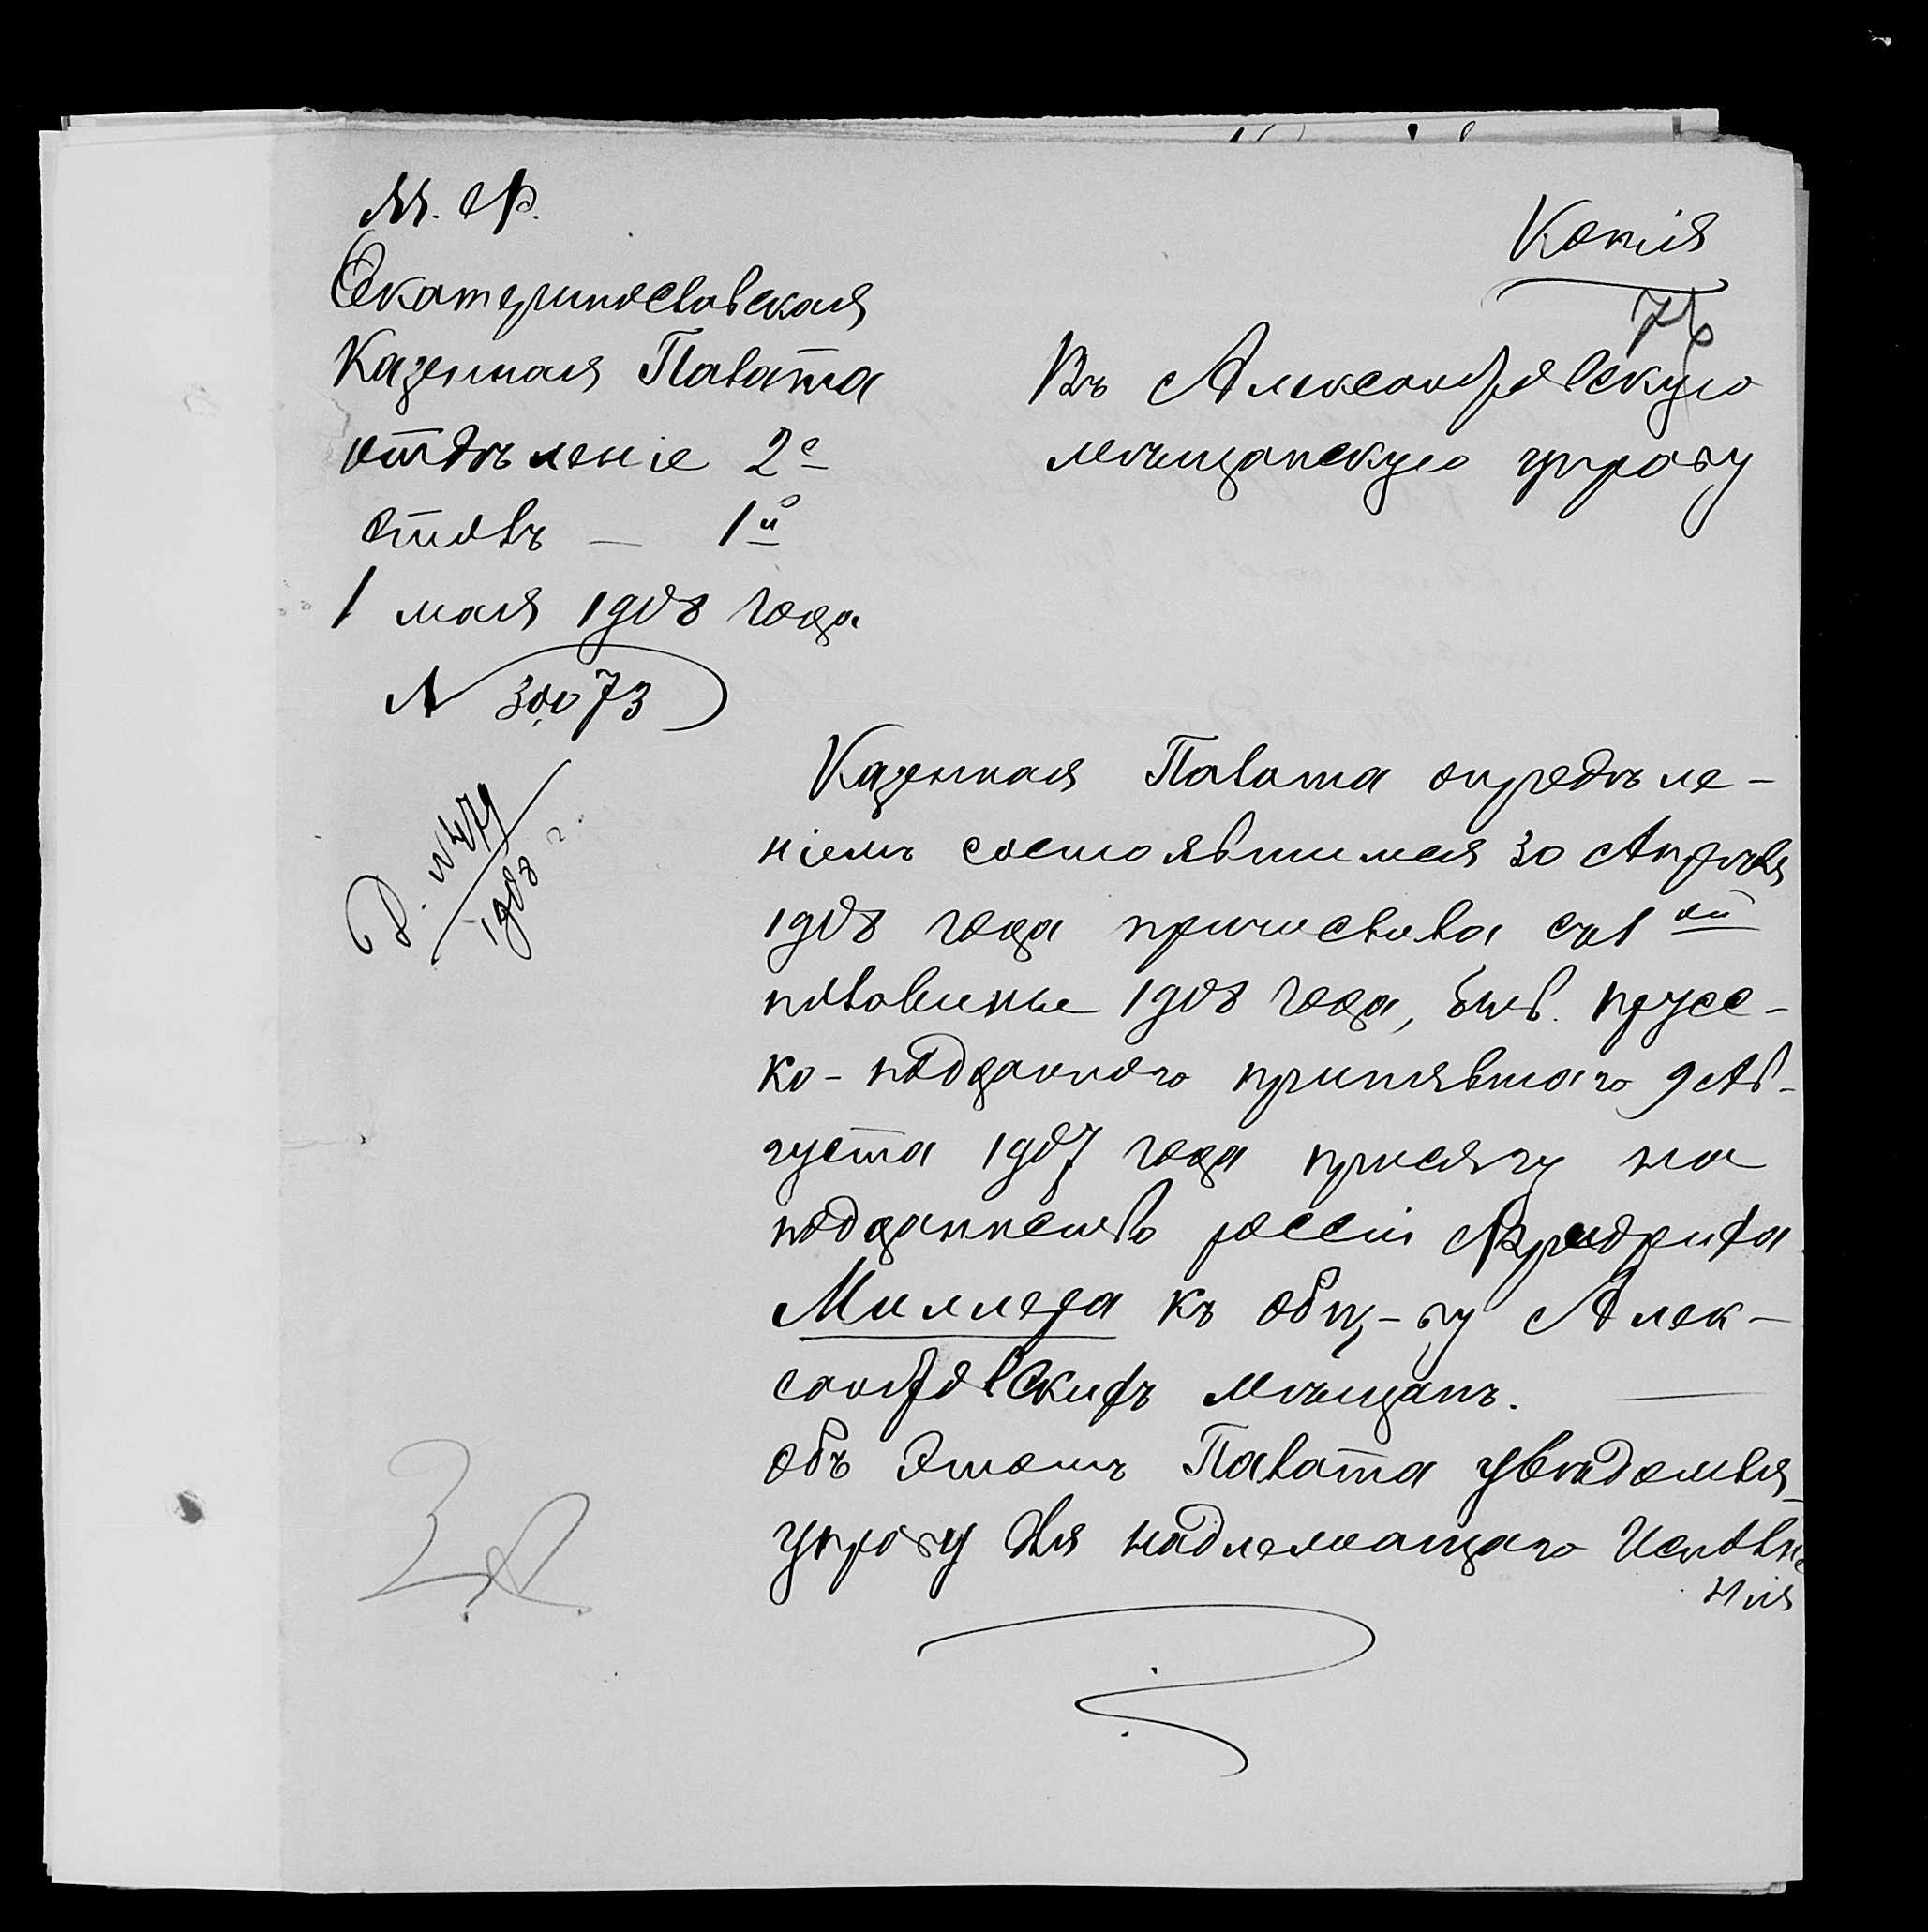 М. Ф.
Екатеринославская
Казенная Палата
отдѣленіе 2е
столъ — 1й
1 мая 1908 года
№ 30073
Копія
76
Въ Александровскую
мѣщанскую управу
Д. № 479
1908 г.
Казенная Палата опредѣле-
ніемъ состоявшимся 30 Апрѣля
1908 года причислила съ 1ой
половины 1908 года, быв. прусс-
ко-подданного принявшаго 9 Ав-
густа 1907 года присягу на
подданнство россіи Фридриха
Миллера къ общ-ву Алек-
сандровскихъ мѣщанъ. —
Объ этомъ Палата увѣдомля-
управу для надлежащаго Исполне
нія